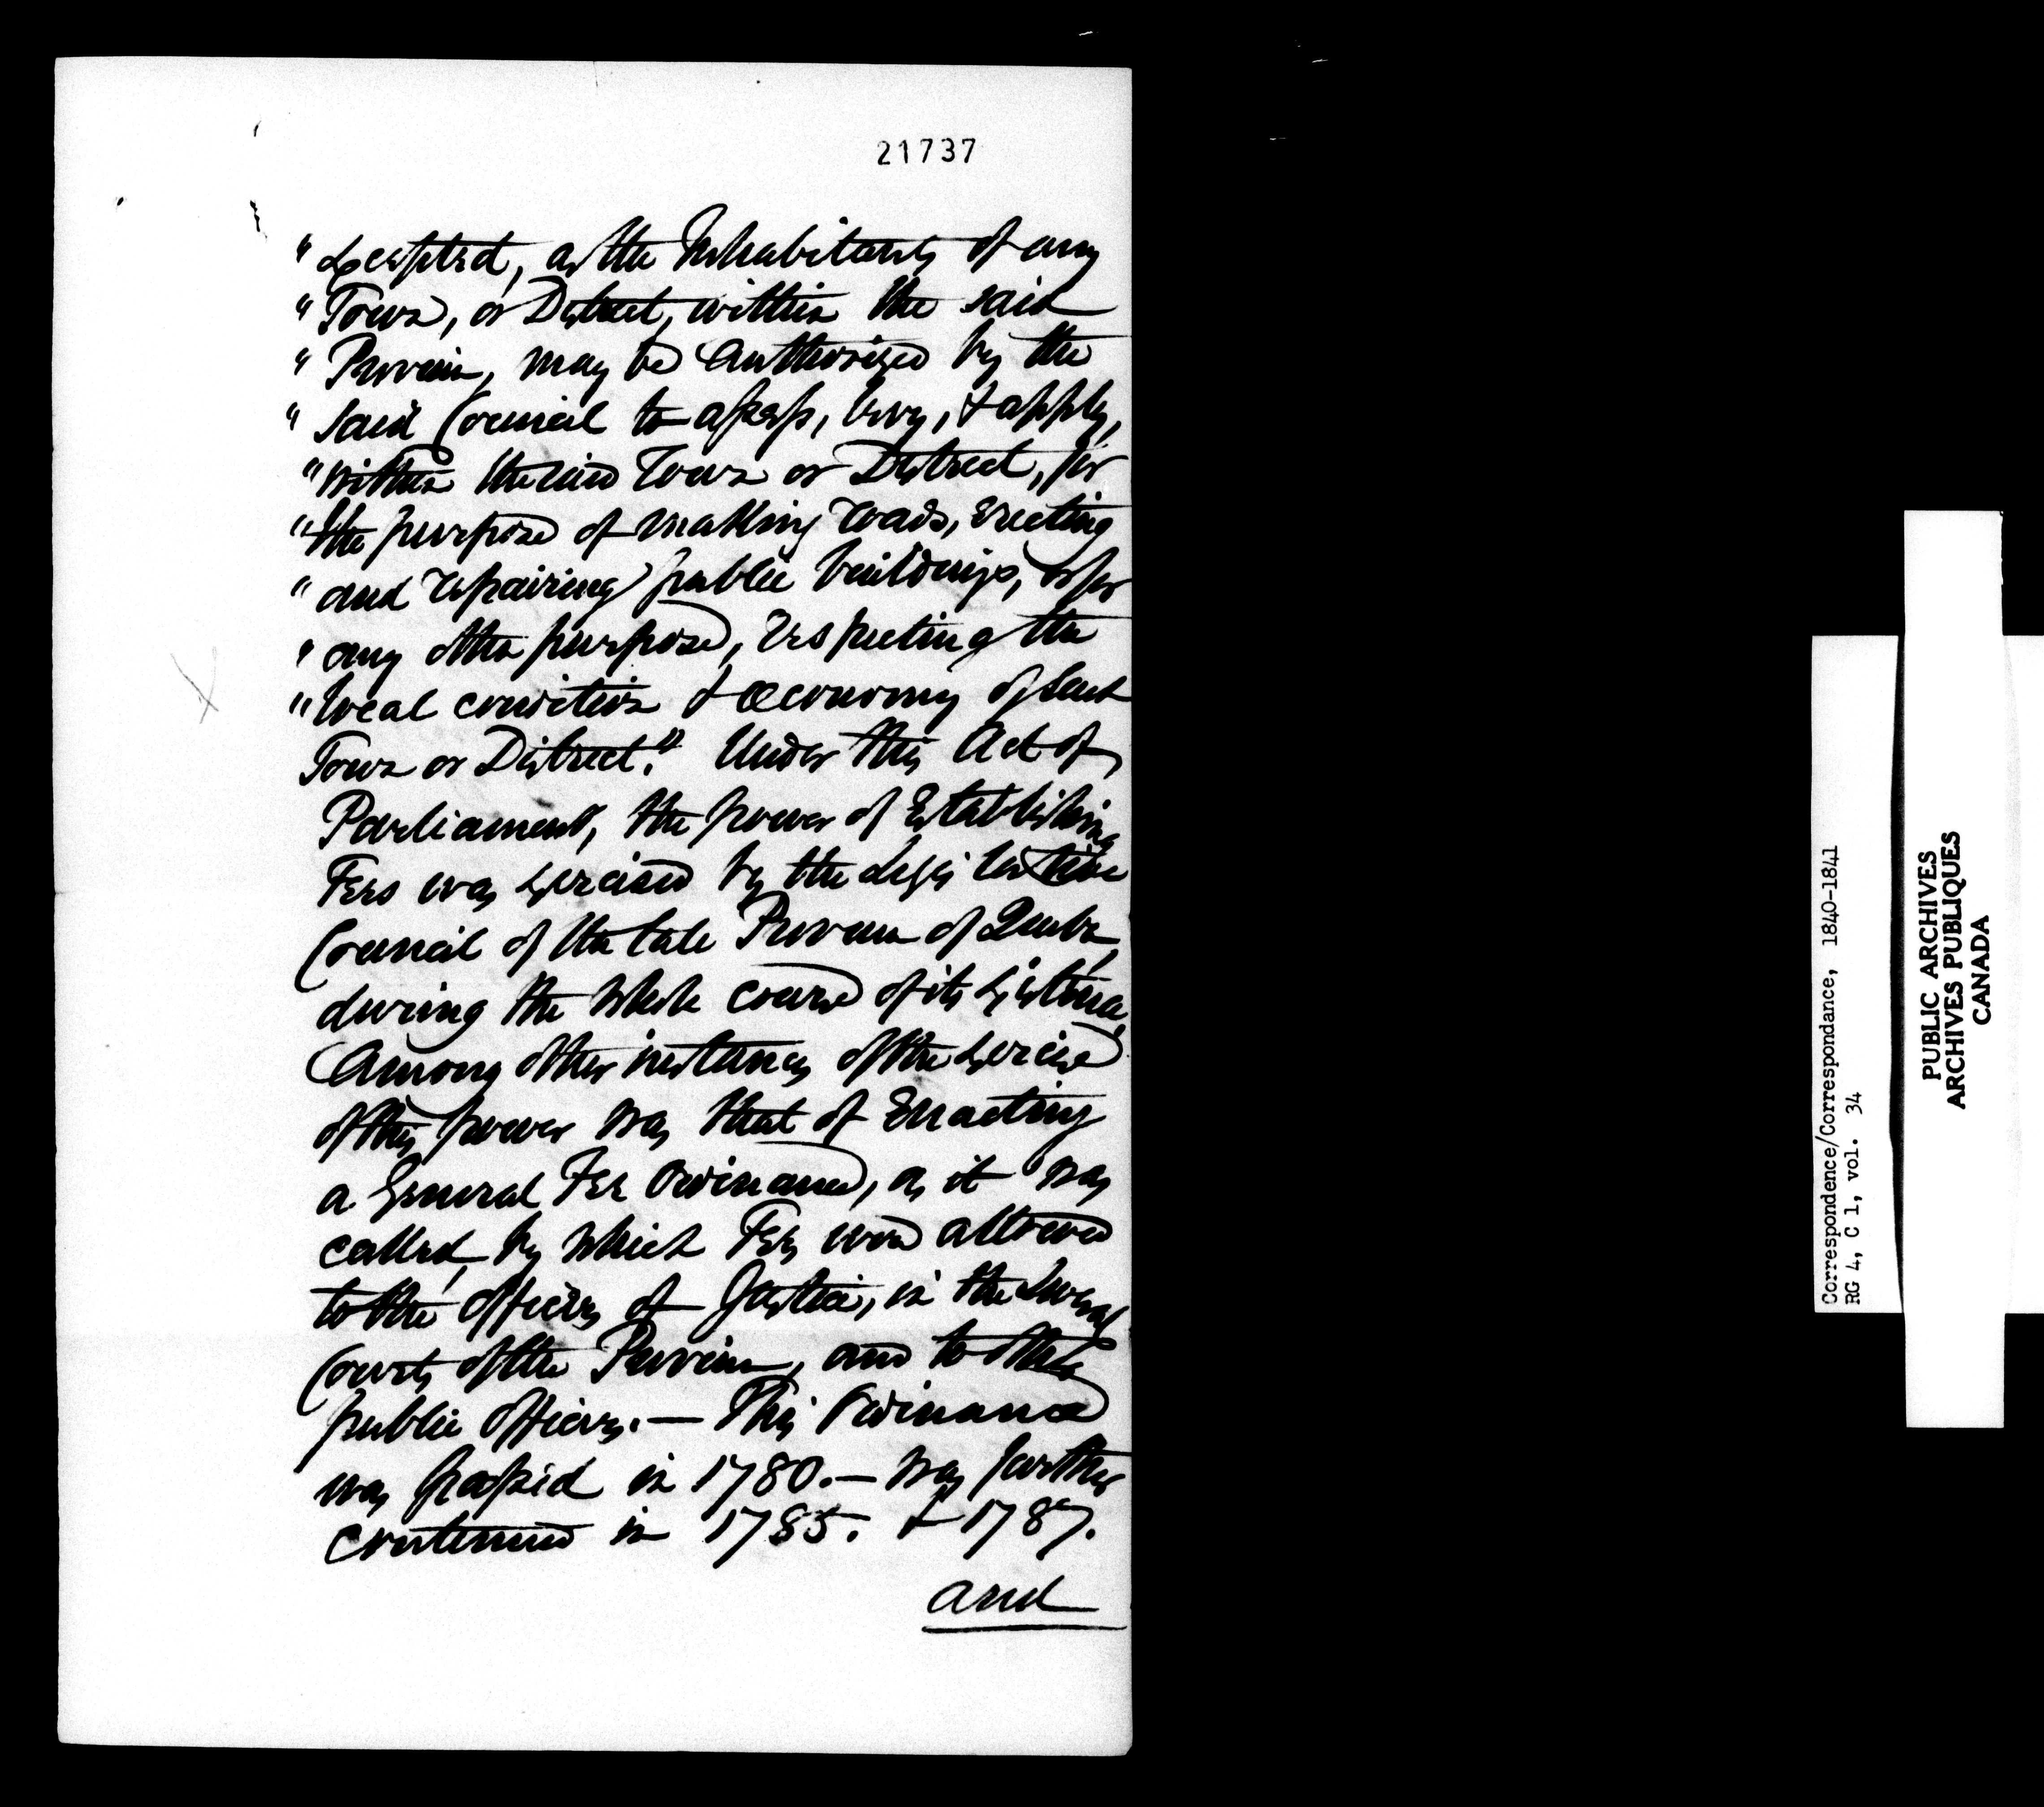 21737
" excepted, as the Inhabitants of any
" Town, or District, within the said
" Province, may be authorized by the
" said Council to assess, levy, & apply,
" within the said Town or District, for
" the purpose of making roads, erecting
" and repairing public buildings, or for
" any other purpose, respecting the
" local convenience & œconomy of such
Town or District." Under this Act of
Parliament, the power of Establishing
Fees was exercised by the Legislative
Council of the late Province of Quebec,
during the whole course of its existence.
Among other instances of the exercise
of this power was that of Enacting
a General Fee Ordinance, as it was
called, by which Fees were allowed
to the officers of Justice, in the several
Courts of the Province, and to other
public officers. — This Ordinance
was passed in 1780. — was further
continued in 1785. & 1787.
and
Correspondence/Correspondance, 1840-1841
RG 4, C 1, vol. 34
PUBLIC ARCHIVES
ARCHIVES PUBLIQUES
CANADA